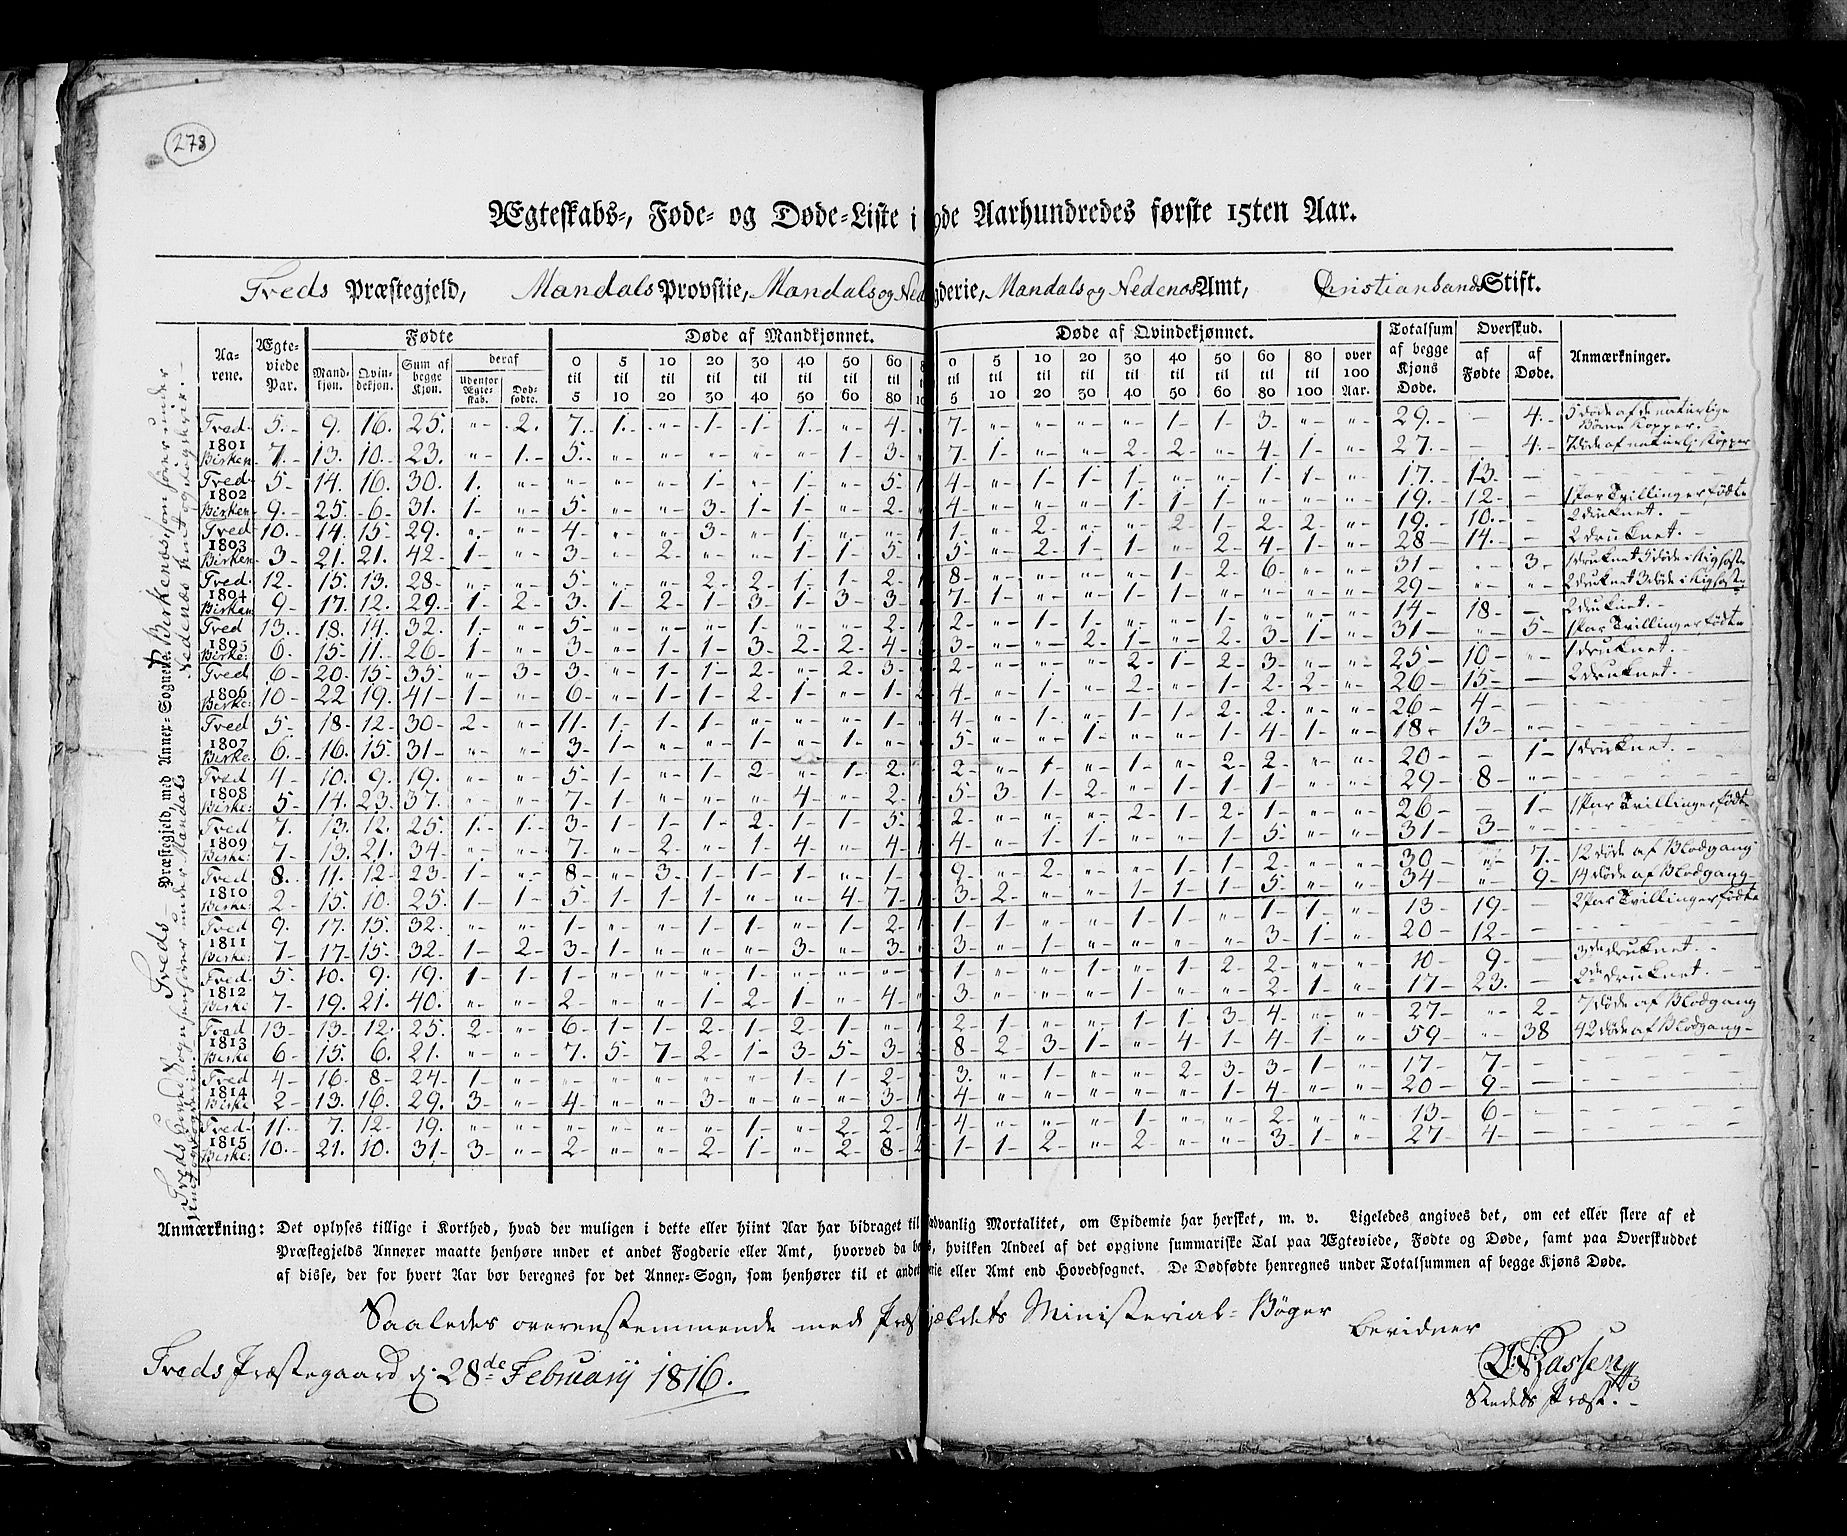 278
Ægteskabs-, Føde- og Døde-Liste i 19de Aarhundredes første 15ten Aar.
Treds Præstegjeld, Mandals Provstie, Mandals og Ned gderie, Mandals og Nedenæs Amt, Christiansands Stift.
Aarene. Ægteviede Par. Fødte Døde af Mandkjønnet. Døde af Qvindekjønnet. Totalsum af begge Kjøns Døde. Overskud. Anmærkninger.
Mandkjøn. Qvindekjøn. Sum af begge Kjøn. deraf Udenfor Ægteskab. Dødfødte. af Fødte af Døde.
0 til 5 5 til 10 10 til 20 20 til 30 30 til 40 40 til 50 50 til 60 60 til 80 0 til 5 5 til 10 10 til 20 20 til 30 30 til 40 40 til 50 50 til 60 60 til 80 80 til 100 over 100 Aar.
Tred 5 9 16 25 " 2 7 1 " 1 1 1 " 4 7 " " " " 1 1 3 " " 29 — 4 5 døde af de naturlige Børne Kopper.
1801
Birken 7 13 10 23 " 1 5 " " " " " 1 3 7 1 " " 2 2 " 4 1 " 27 — 4 7 døde af naturl. Kopper
Tred 5 14 16 30 1 " " " " 1 " 1 " 5 4 " 1 1 1 " " 1 1 " 17 13 —
1802
Birken 9 25 6 31 1 " 5 " " 3 1 1 " 2 4 " " " 1 1 1 " " " 19 12 — 1 Par Tvillinger fødte
Tred 10 14 15 29 " " 4 " " 3 " 1 " " 1 " 2 " " 2 1 2 2 " 19 10 — 2 druknet.
1803
Birken 3 21 21 42 1 " 3 " 2 " " 1 1 5 5 " 2 1 1 " 2 4 1 " 28 14 — 2 druknet.
Tred 12 15 13 28 " " 5 " " 2 2 1 1 2 8 " " " " 1 2 6 " " 31 " 3
1804
Birken 9 17 12 29 1 2 3 1 2 1 3 1 3 3 7 1 " " 1 1 " " " " 29 " "
Tred 13 18 14 32 1 " 5 " " " 1 " " 2 2 " 1 1 " " 1 " " " 14 18 — 2 druknet.
1805
Birke: 6 15 11 26 1 " 3 " 1 1 3 2 2 4 3 " " 2 1 " 2 3 1 " 31 " 5 1 Par Tvillinger fødte
Tred 6 20 15 35 " 3 3 " 1 1 2 " 2 3 2 " " " 2 1 2 3 " " 25 10 " 1 druknet.
1806
Birke: 10 22 19 41 1 " 6 " 1 1 2 1 " 1 4 " 1 " 2 " 1 2 2 " 26 15 — 2 druknet.
Tred 5 18 12 30 2 " 11 1 1 1 " " " 1 4 " 1 " 1 1 2 2 " " 26 4 —
1807
Birke: 6 16 15 31 " " 3 1 " " 1 " 1 " 5 " " 1 " " 1 4 1 " 18 13 "
Tred 4 10 9 19 " " 5 1 " 1 2 " 1 2 2 " 1 " 1 " 2 2 " " 20 — 1 1 druknet.
1808
Birke: 5 14 23 37 " " 7 1 " " " 4 " 2 5 3 1 2 " 1 1 1 " " 29 8 "
Tred 7 13 12 25 1 1 3 1 1 1 2 1 1 5 2 " " " 2 1 2 1 " " 26 — 1 1 Par Tvillinger fødte
1809
Birke: 7 13 21 34 " " 7 " 2 " 1 4 " 4 4 " 1 1 " " 1 5 " " 31 3 "
Tred 8 11 12 23 1 " 8 " 3 1 1 1 " 1 9 " 2 " " 1 1 2 " " 30 " 7 12 døde af Blodgang
1810
Birke: 2 15 10 25 1 1 5 1 1 1 " " 4 7 3 2 " " 1 1 1 5 " " 34 " 9 14 døde af Blodgang
Tred 9 17 15 32 " " 1 " " " 1 " 1 2 1 1 " " 1 1 " 1 1 " 13 19 — 2 Par Tvillinger fødte
1811
Birke: 7 17 15 32 1 2 3 1 " " " 3 " 3 3 " 1 " " " " 3 1 " 20 12 —
Tred 5 10 9 19 1 1 1 " " " " " " " 1 " " 1 " 1 2 2 " " 10 9 — 3 druknet.
1812
Birke 7 19 21 40 " " 2 " " 1 2 1 " 4 3 " " " 1 " " 2 1 " 17 23 — 2 druknet
Tred 13 13 12 25 2 " 6 1 1 2 1 2 1 " 2 1 " " 1 1 3 4 " " 27 " 2 7 døde af Blodgang
1813
Birke 6 15 6 21 " " 7 5 7 2 1 3 5 3 8 2 3 1 " 4 1 4 1 " 59 " 38 42 døde af Blodgang
Tred 4 16 8 24 1 " " " " " " 1 1 2 3 " 1 " " 2 3 3 1 " 17 7 —
1814
Birke 2 13 16 29 3 " 4 " " 3 " " " 3 4 " " " " " 1 4 " " 20 9 —
Tred 11 7 12 19 " " " " " " 1 " 2 2 4 " " " 1 " " 2 " " 13 6 —
1815
Birke: 10 21 10 31 3 " 2 " " 2 1 " 2 8 1 1 2 " 2 " " 3 1 " 27 4 —
Treds Præstegjeld med Annex-Sognene: Birkenæs, som sorterer under Nedenæs Amt og Fogderie.
Treds Hoved Sogn henhører under Mandals
Anmærkning: Det oplyses tillige i Korthed, hvad der muligen i dette eller hiint Aar har bidraget til sædvanlig Mortalitet, om Epidemie har hersket, m. v. Ligeledes angives det, om eet eller flere af et
Præstegjelds Annexer maatte henhøre under et andet Fogderie eller Amt, hvorved da be s, hvilken Andeel af det opgivne summariske Tal paa Ægteviede, Fødte og Døde, samt paa Overskuddet
af disse, der for hvert Aar bør beregnes for det Annex-Sogn, som henhører til et andet rie eller Amt end Hovedsognet. De Dødfødte henregnes under Totalsummen af begge Kjøns Døde.
Saaledes overensstemmende med Præstegjældets Ministerial-Bøger bevidner
Treds Præstegaard d: 28de Februarij 1816.
Stedets Præst.